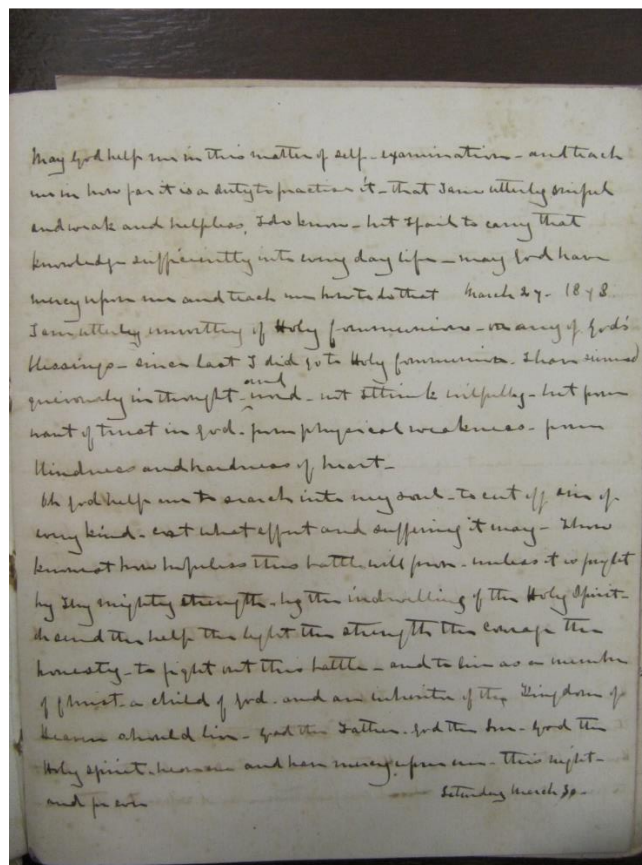 May God help me in this matter of self-examination - and teach
me in how far it is a duty to practise it - that I am utterly sinful
and weak and helpless, I do know - but I fail to carry that
knowledge sufficiently into every day life - may God have
mercy upon me and teach me how to do that March 27 - 1878
I am utterly unworthy of Holy Communion - or any of God's
blessings - since last I did go to Holy Communion. I have sinned
grievously in thought - and word - not I think wilfully - but from
want of trust in God - from physical weakness - from
blindness and hardness of heart -
Oh God help me to search into my soul - to cut off sin of
every kind - cost what effort and suffering it may - Thou
knowest how hopeless this battle will prove - unless it is fought
by Thy mighty strength - by the indwelling of the Holy Spirit -
Oh send the help the light the strength the courage the
honesty - to fight out this battle - and to live as a member
of Christ - a child of God - and an inheritor of the Kingdom of
Heaven should live - God the Father - God the Son - God the
Holy Spirit - hear me and have mercy upon me - this night -
and for ever Saturday March 30 -